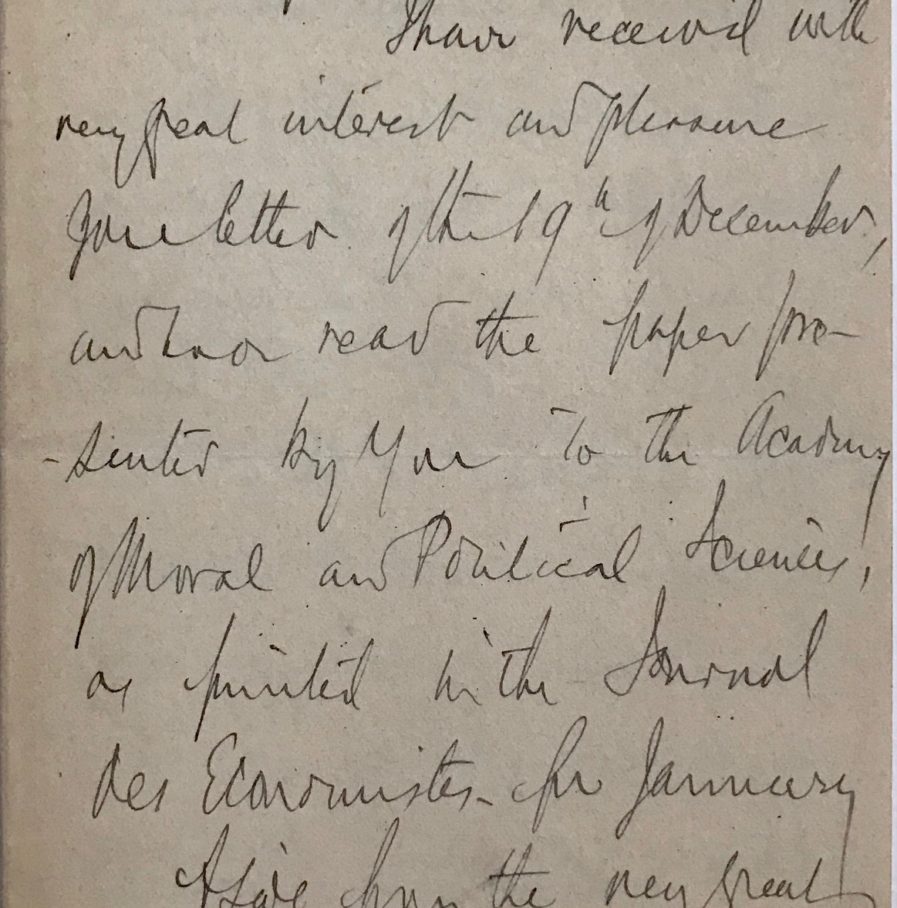 I have received with
very great interest and pleasure
your letter of the 19th of December,
and have read the paper pre-
-sented by you to the Academy
of Moral and Political Sciences,
as printed in the Journal
des Economistes for January
Aside from the very great